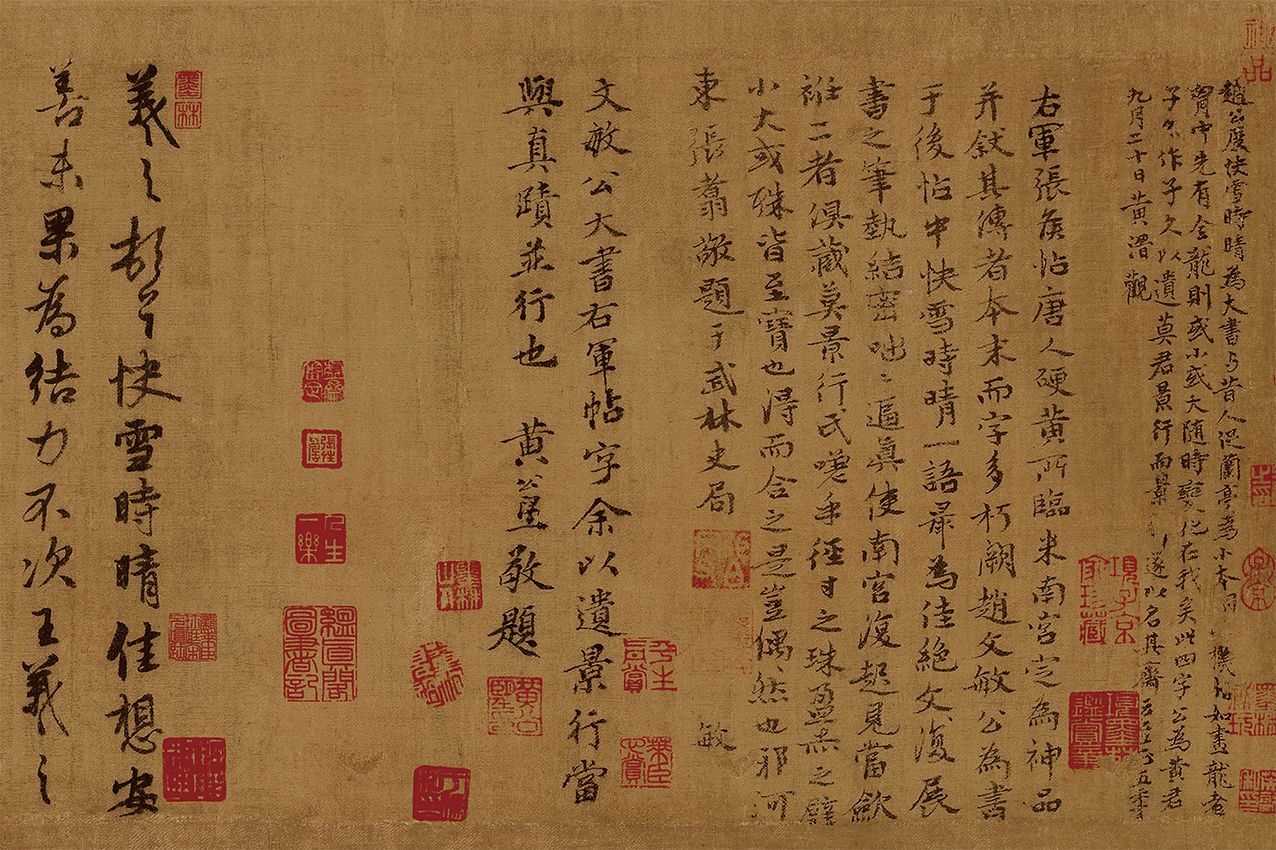 趙公展快雪時晴為大書與昔人促蘭亭為小本同一機如畫龍者
胷中先有全龍則或小或大隨時變化在我矣此四字公為黃君
子久作子久以遺莫君景行而景行遂以名其齋至正五年
九月二十日黃溍觀
右軍張矦帖唐人硬黃所臨米南宮定為神品
并敘其傳者本末而字多朽闕趙文敏公為書
于後帖中快雪時晴一語最為佳絕文敏復展
書之筆埶結密咄咄逼真使南宮復起見當歛
衽二者俱藏莫景行氏嘆手徑寸之珠盈尺之璧
小大或殊皆至寶也得而合之是豈偶然也邪河
東張翥敬題于武林史局
敏
文敏公大書右軍帖字余以遺景行當
與真蹟並行也 黃公望敬題
羲之頓首快雪時晴佳想安
善未果為結力不次王羲之
神品
項子京
家珍藏
項墨林
鑑賞章
墨林
人生
一樂
平生
真賞